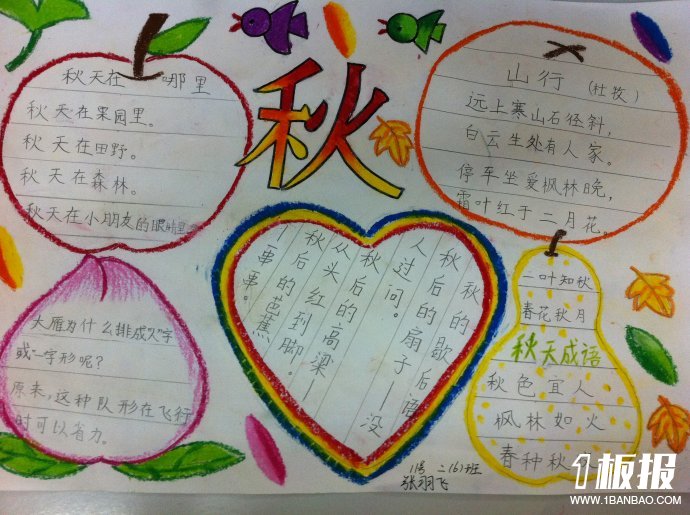 秋
秋天在哪里
秋天在果园里。
秋天在田野。
秋天在森林。
秋天在小朋友的眼睛里
山行 (杜牧)
远上寒山石径斜,
白云生处有人家。
停车坐爱枫林晚,
霜叶红于二月花。
大雁为什么排成人字
或一字形呢?
原来,这种队形在飞行
时可以省力。
秋的歇后语
秋后的扇子——没
人过问。
秋后的高粱——
从头红到脚。
秋后的芭蕉——
一串一串。
一叶知秋
春花秋月
秋天成语
秋色宜人
枫林如火
春种秋
二(6)班
1板报
WWW.1BANBAO.COM